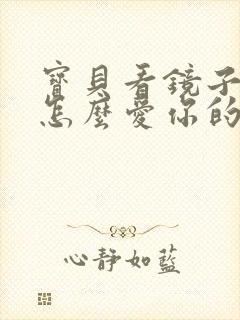 寶貝看鏡子
怎麼愛你的
心靜如藍